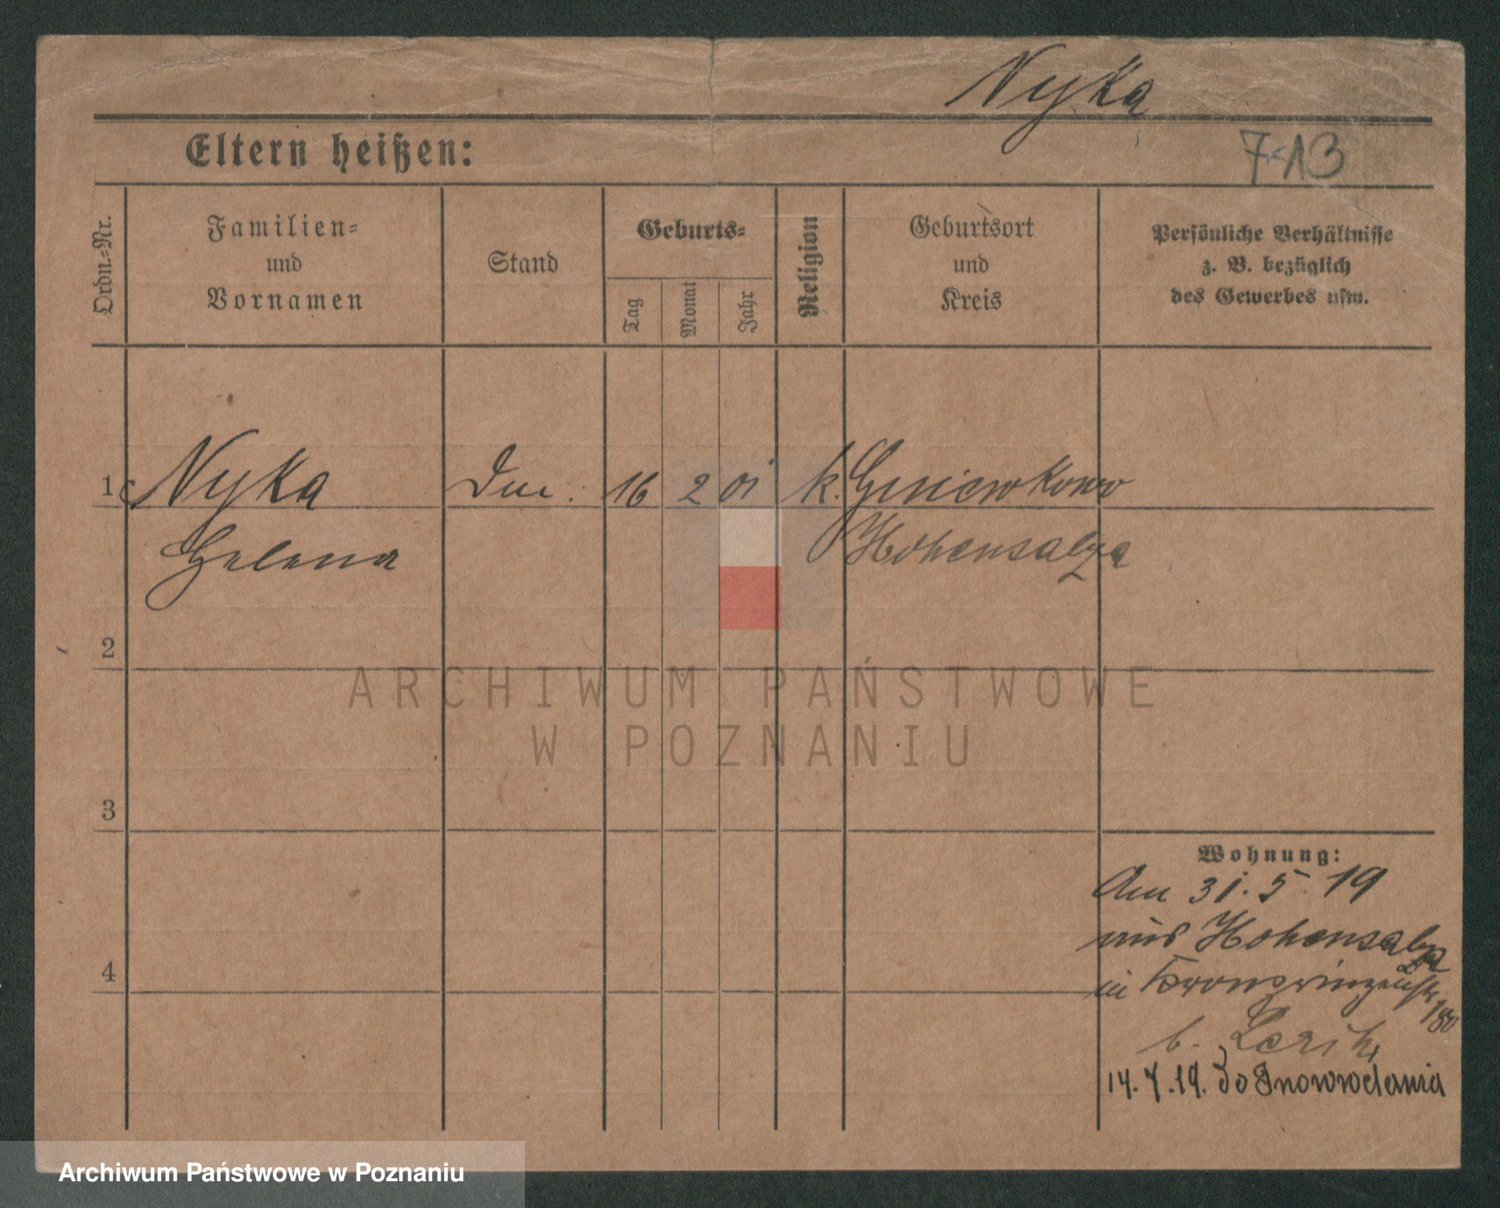 Nyka
Eltern heißen:
7·13
Ordn.-Nr.
Familien-
und
Vornamen
Stand
Geburts-
Tag
Monat
Jahr
Religion
Geburtsort
und
Kreis
Persönliche Verhältnisse
z. B. bezüglich
des Gewerbes usw.
1 Nyka 16 2 01 k. Gniewkowo
Helena Hohensalza
2
3
Wohnung:
Am 31.5.19
aus Hohensalza
4
in Kronprinzenstr
100
b.
14.7.19. do Inowrocławia
ARCHIWUM PAŃSTWOWE
W POZNANIU
Archiwum Państwowe w Poznaniu